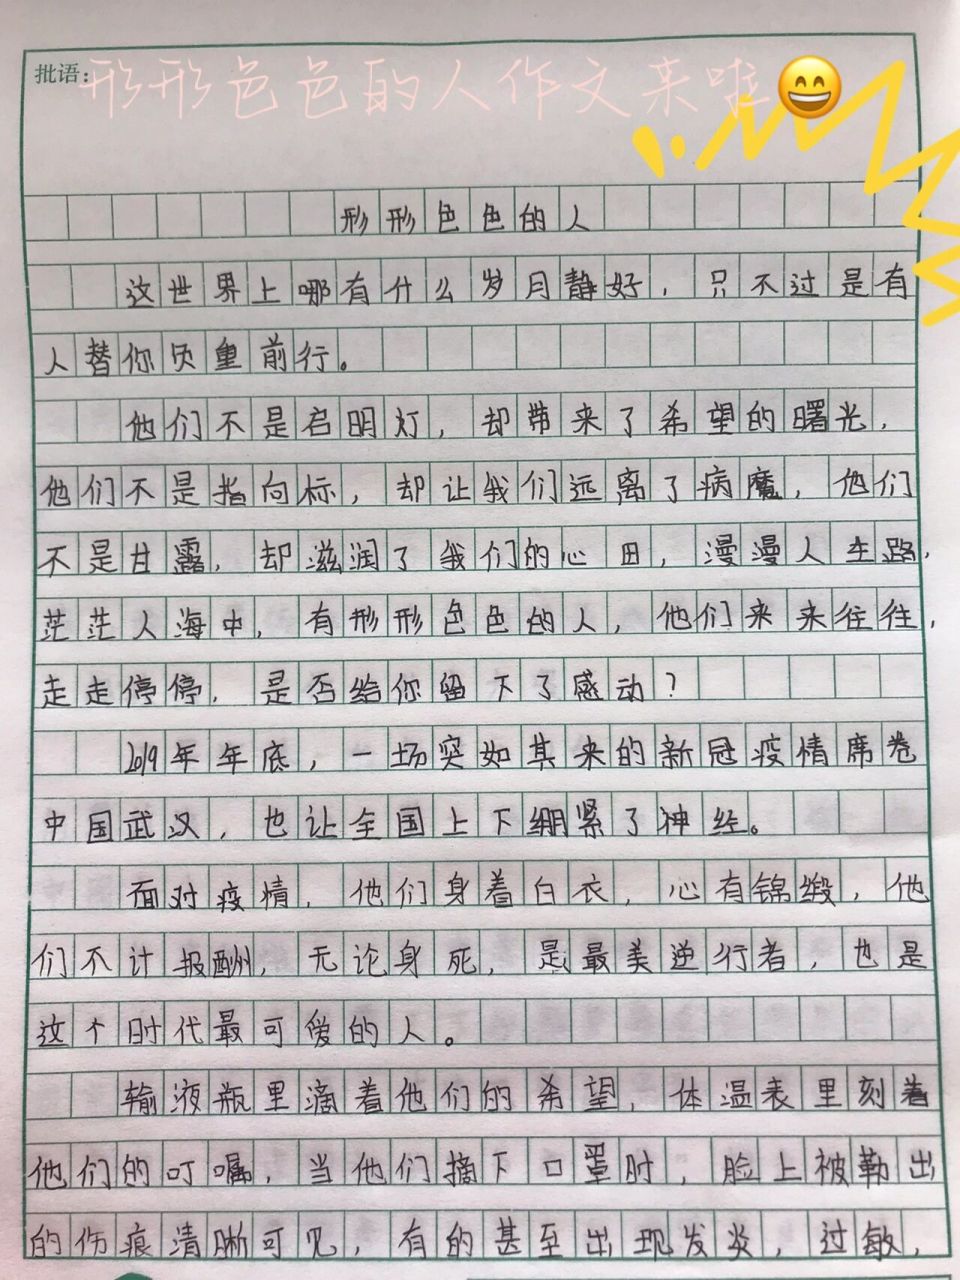 批语：形形色色的人作文来啦
形形色色的人
这世界上哪有什么岁月静好，只不过是有
人替你负重前行。
他们不是启明灯，却带来了希望的曙光，
他们不是指向标，却让我们远离了病魔，他们
不是甘露，却滋润了我们的心田，漫漫人生路，
茫茫人海中，有形形色色的人，他们来来往往，
走走停停，是否给你留下了感动？
2019年年底，一场突如其来的新冠疫情席卷
中国武汉，也让全国上下绷紧了神经。
面对疫情，他们身着白衣，心有锦缎，他
们不计报酬，无论身死，是最美逆行者，也是
这个时代最可爱的人。
输液瓶里滴着他们的希望，体温表里刻着
他们的叮嘱，当他们摘下口罩时，脸上被勒出
的伤痕清晰可见，有的甚至出现发炎，过敏，